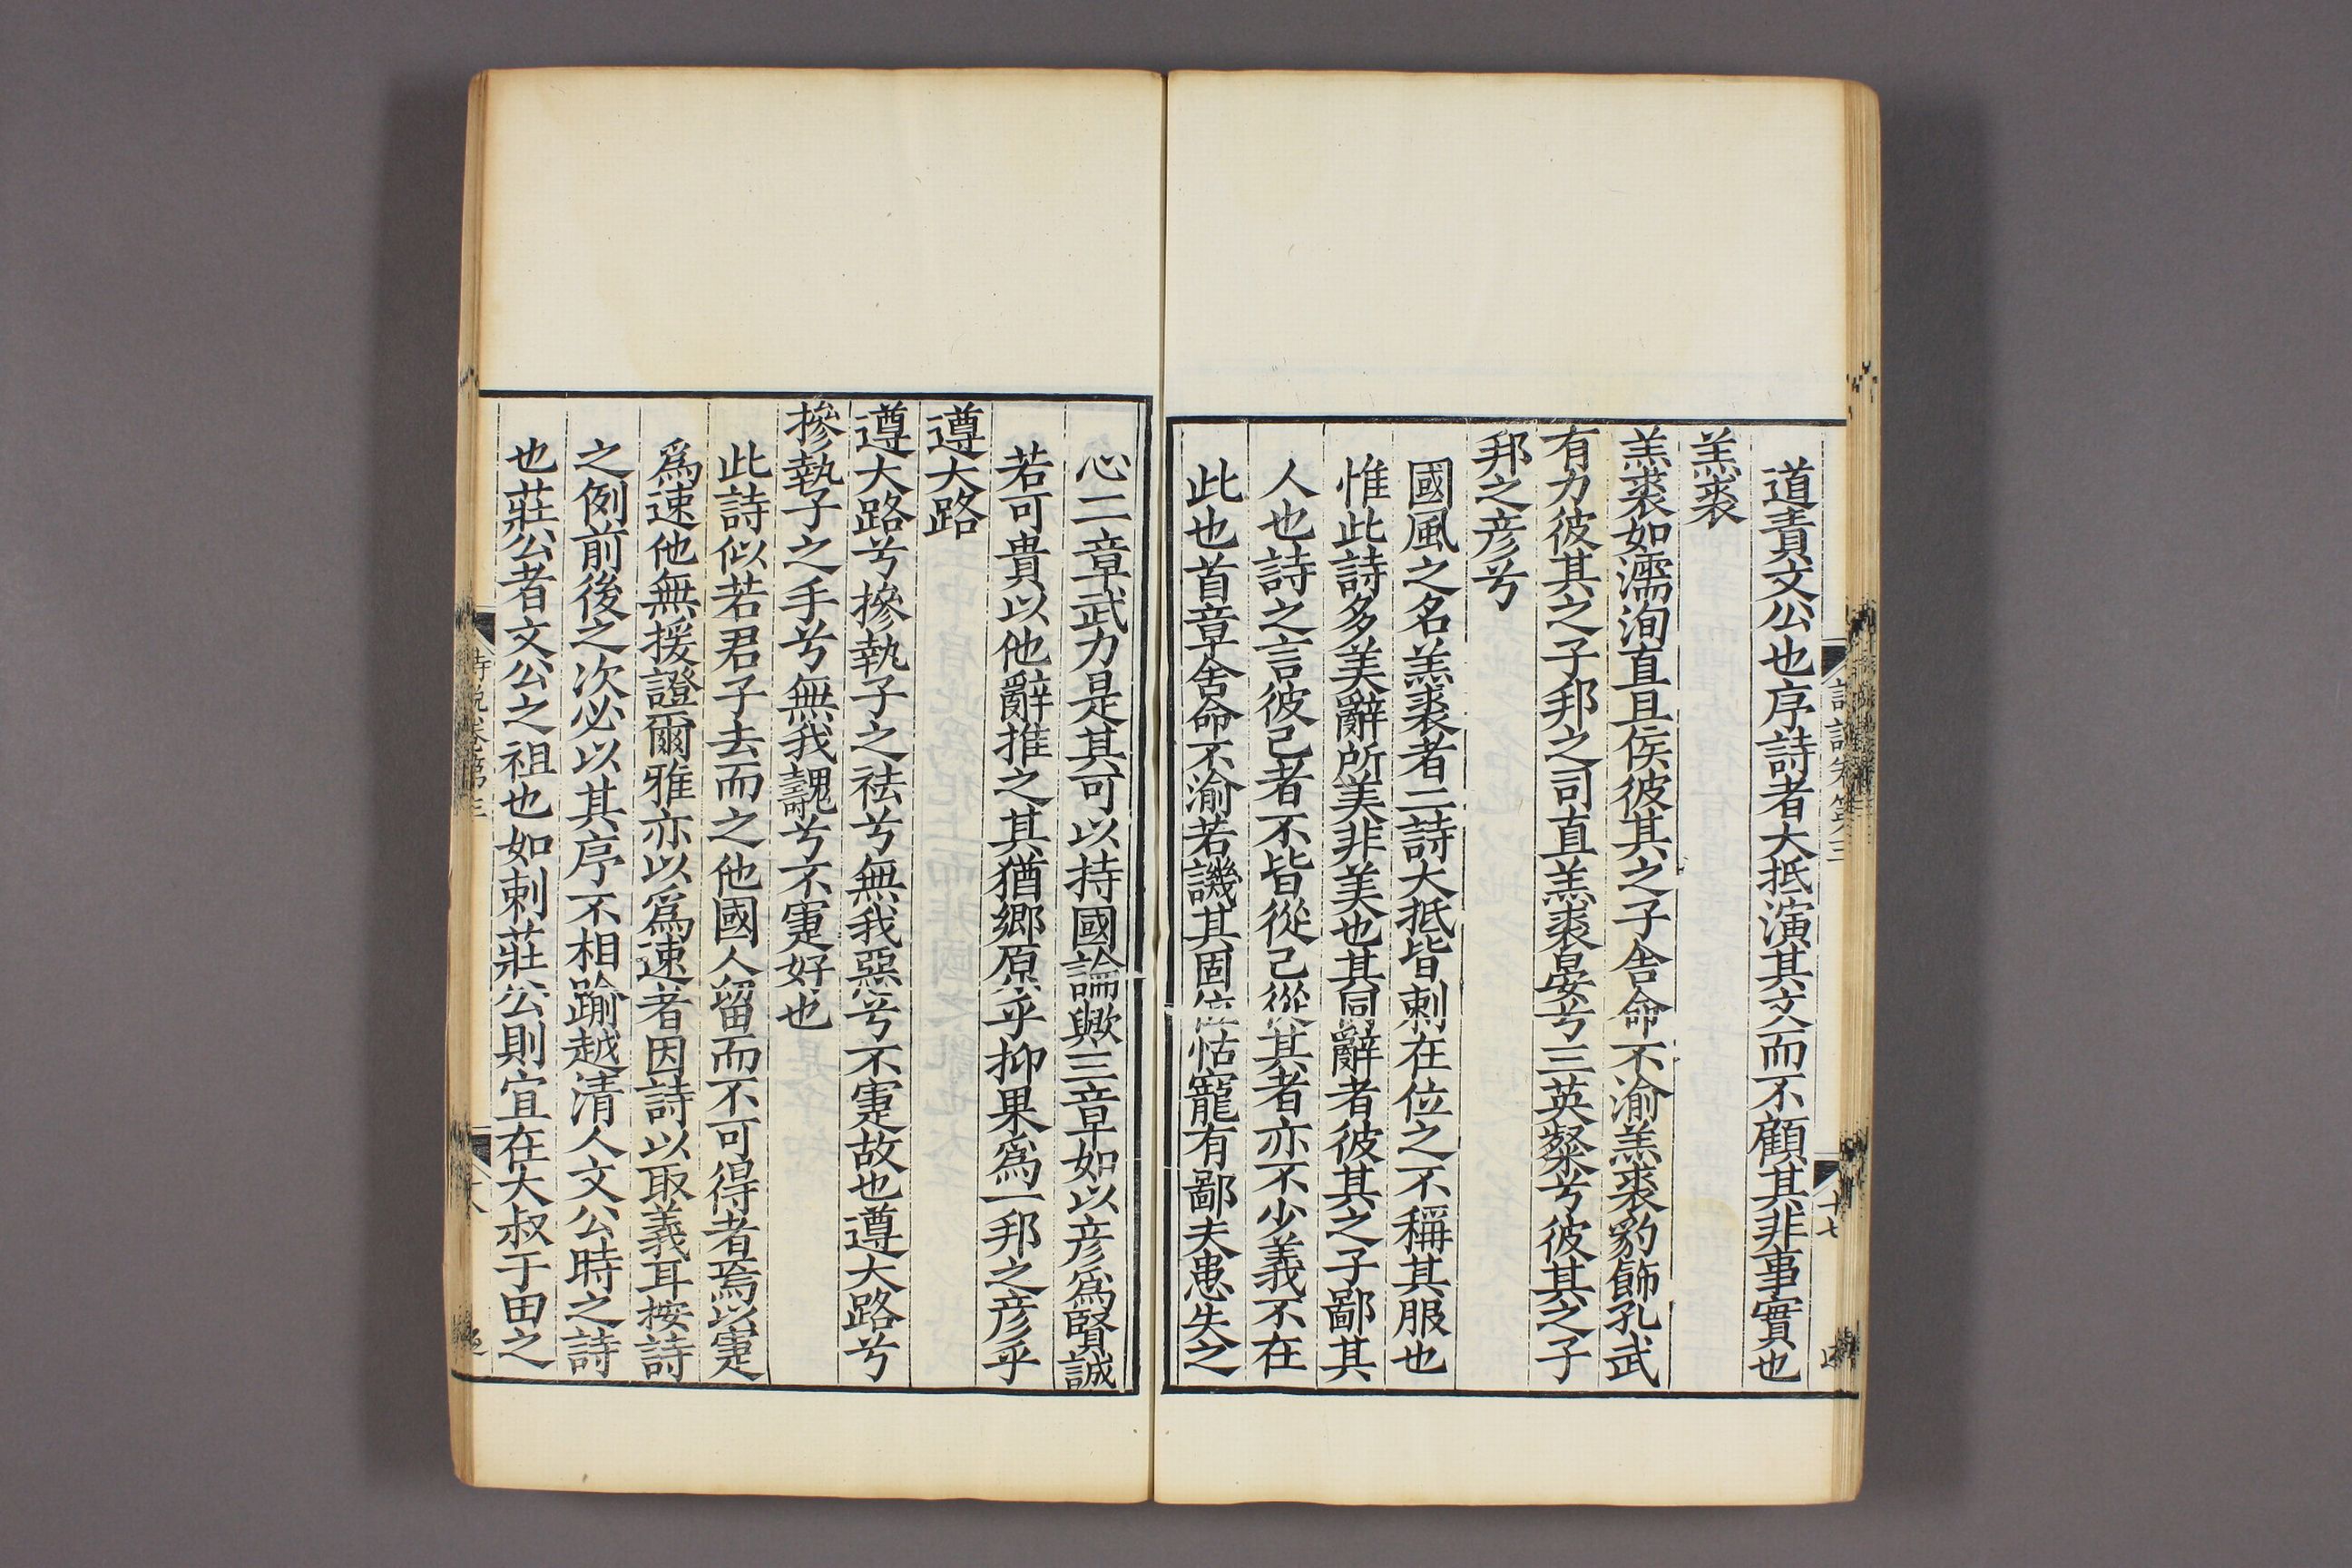 道責文公也序詩者大抵演其文而不顧其非事實也
羔裘
羔裘如濡洵直且侯彼其之子舍命不渝羔裘豹飾孔武
有力彼其之子邦之司直羔裘晏兮三英粲兮彼其之子
邦之彦兮
國風之名羔裘者二詩大抵皆刺在位之不稱其服也
惟此詩多美辭所美非美也其同辭者彼其之子鄙其
人也詩之言彼己者不皆從己從其者亦不少義不在
此也首章舍命不渝若譏其固位怙寵有鄙夫患失之
心二章武力是其可以持國論歟三章如以彦爲賢誠
若可貴以他辭推之其猶鄉原乎抑果爲一邦之彦乎
遵大路
遵大路兮摻執子之袪兮無我惡兮不寁故也遵大路兮
摻執子之手兮無我魗兮不寁好也
此詩似若君子去而之他國人留而不可得者焉以寁
爲速他無援證爾雅亦以爲速者因詩以取義耳按詩
之例前後之次必以其序不相踰越清人文公時之詩
也莊公者文公之祖也如刺莊公則宜在大叔于田之
詩説卷第三
十七
詩説卷第三
十八